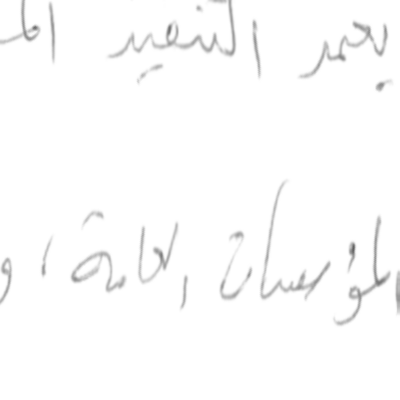 يعتبر التنفيذ الم
المؤسسات العامة، و